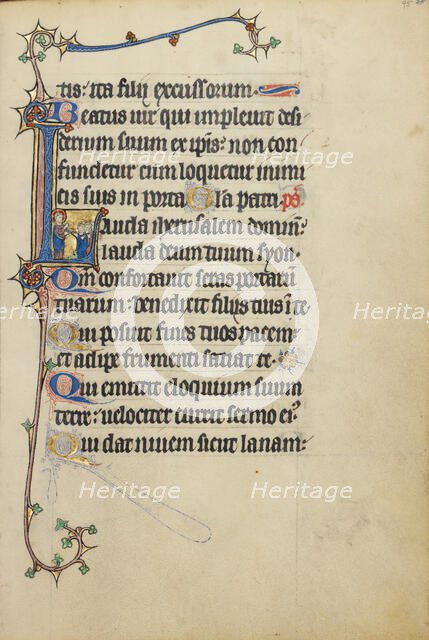 95
tis: ita filii excussorum.
Beatus uir qui impleuit desi
derium suum ex ipīs: non con
fundetur cum loquetur inimi
cis suis in porta Gl̄a patri. ps̄
Lauda iherusalem dominū:
lauda deum tuum syon.
Qm̄ confortauit seras portarū
tuarum: benedixit filijs tuis ī te
Qui posuit fines tuos pacem
et adipe frumenti satiat te.
Qui emittit eloquium suum
terre: uelociter currit sermo ei9
Qui dat niuem sicut lanam:
Heritage Heritage Heritage
Heritage Heritage Heritage